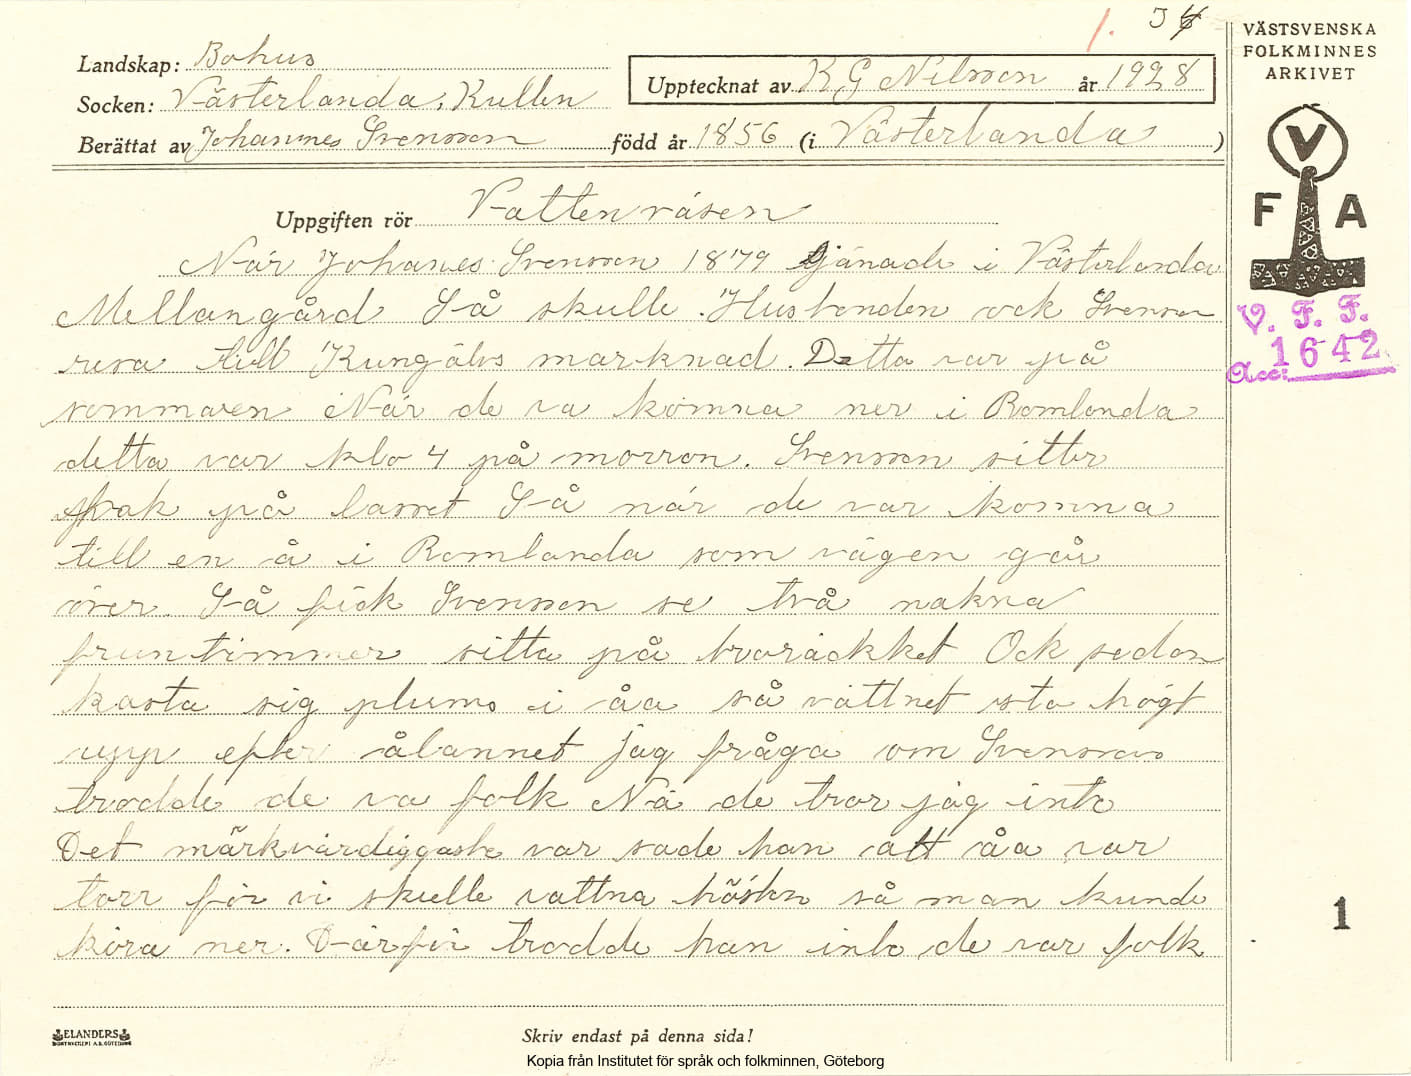 1. J 4
VÄSTSVENSKA
FOLKMINNES
ARKIVET
V
F A
V. F. F.
Acc: 1642
Landskap: Bohus
Socken: Västerlanda, Kullen
Upptecknat av K G Nilsson år 1928
Berättat av Johannes Svensson född år 1856 (i Västerlanda )
Uppgiften rör Vattenväsen
När Johanes Svensson 1879 tjänade i Västerlanda
Mellangård Så skulle Husbonden ock Svensson
resa till Kungälvs marknad. Detta var på
sommaren När de va komna ner i Romlanda
detta var klo 4 på morron. Svensson sitter
vak på lasset Så när de var komna
till en å i Romlanda som vägen går
över. Så fick Svensson se två nakna
fruntimmer sitta på broräckket Ock sedan
kasta sig plums i åa så vattnet sto högt
upp efter ålannet jag fråga om Svensson
trodde de va folk Nä de tror jag inte
Det märkvärdiggaste var sade han att åa var
torr för vi skulle vattna hästen så man kunde
köra ner. Därför trodde han inte de var folk
1
ELANDERS
Skriv endast på denna sida!
Kopia från Institutet för språk och folkminnen, Göteborg